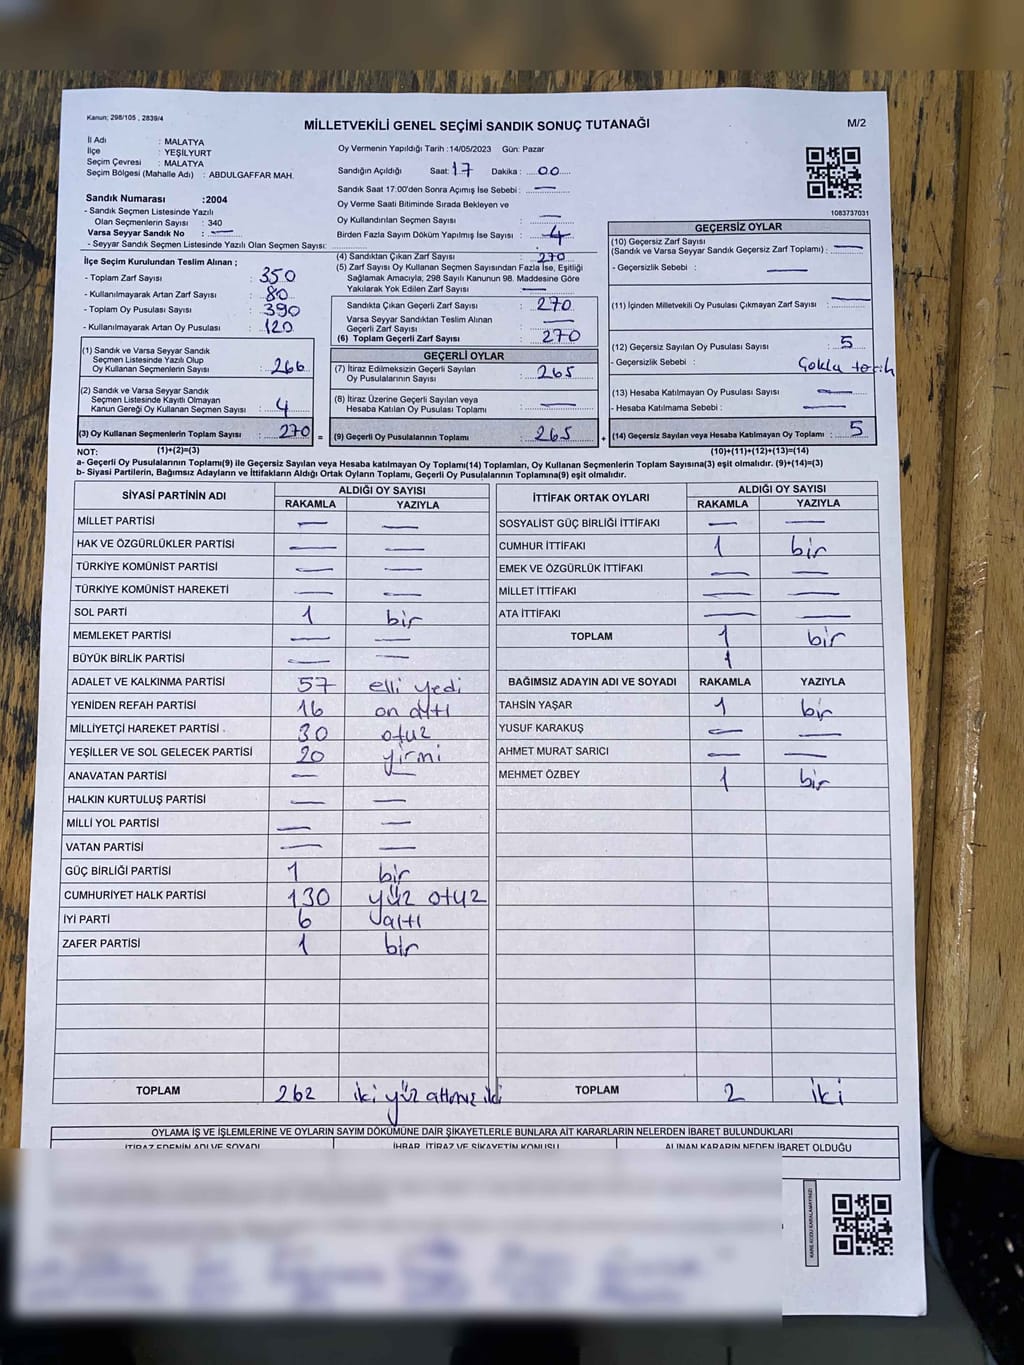 Kanun; 298/105 , 2839/4
MİLLETVEKİLİ GENEL SEÇİMİ SANDIK SONUÇ TUTANAĞI
M/2
İl Adı : MALATYA
İlçe : YEŞİLYURT
Seçim Çevresi : MALATYA
Seçim Bölgesi (Mahalle Adı) : ABDULGAFFAR MAH.
Sandık Numarası :2004
- Sandık Seçmen Listesinde Yazılı
Olan Seçmenlerin Sayısı : 340
Varsa Seyyar Sandık No : —
- Seyyar Sandık Seçmen Listesinde Yazılı Olan Seçmen Sayısı:
Oy Vermenin Yapıldığı Tarih :14/05/2023 Gün: Pazar
Sandığın Açıldığı Saat: 17 Dakika : 00
Sandık Saat 17:00'den Sonra Açımış İse Sebebi : —
Oy Verme Saati Bitiminde Sırada Bekleyen ve
Oy Kullandırılan Seçmen Sayısı : —
Birden Fazla Sayım Döküm Yapılmış İse Sayısı : 4
1083737031
İlçe Seçim Kurulundan Teslim Alınan ;
- Toplam Zarf Sayısı : 350
- Kullanılmayarak Artan Zarf Sayısı : 80
- Toplam Oy Pusulası Sayısı : 390
- Kullanılmayarak Artan Oy Pusulası : 120
(1) Sandık ve Varsa Seyyar Sandık
Seçmen Listesinde Yazılı Olup
Oy Kullanan Seçmenlerin Sayısı : 266
(2) Sandık ve Varsa Seyyar Sandık
Seçmen Listesinde Kayıtlı Olmayan
Kanun Gereği Oy Kullanan Seçmen Sayısı : 4
(3) Oy Kullanan Seçmenlerin Toplam Sayısı : 270 =
(4) Sandıktan Çıkan Zarf Sayısı : 270
(5) Zarf Sayısı Oy Kullanan Seçmen Sayısından Fazla İse, Eşitliği
Sağlamak Amacıyla, 298 Sayılı Kanunun 98. Maddesine Göre
Yakılarak Yok Edilen Zarf Sayısı : —
Sandıkta Çıkan Geçerli Zarf Sayısı : 270
Varsa Seyyar Sandıktan Teslim Alınan
Geçerli Zarf Sayısı : —
(6) Toplam Geçerli Zarf Sayısı : 270
GEÇERLİ OYLAR
(7) İtiraz Edilmeksizin Geçerli Sayılan
Oy Pusulalarının Sayısı : 265
(8) İtiraz Üzerine Geçerli Sayılan veya
Hesaba Katılan Oy Pusulası Toplamı : —
(9) Geçerli Oy Pusulalarının Toplamı : 265 +
GEÇERSİZ OYLAR
(10) Geçersiz Zarf Sayısı
(Sandık ve Varsa Seyyar Sandık Geçersiz Zarf Toplamı) : —
- Geçersizlik Sebebi : —
(11) İçinden Milletvekili Oy Pusulası Çıkmayan Zarf Sayısı : —
(12) Geçersiz Sayılan Oy Pusulası Sayısı : 5
- Geçersizlik Sebebi :
(13) Hesaba Katılmayan Oy Pusulası Sayısı : —
- Hesaba Katılmama Sebebi : —
(14) Geçersiz Sayılan veya Hesaba Katılmayan Oy Toplamı : 5
NOT: (1)+(2)=(3) (10)+(11)+(12)+(13)=(14)
a- Geçerli Oy Pusulalarının Toplamı(9) ile Geçersiz Sayılan veya Hesaba katılmayan Oy Toplamı(14) Toplamları, Oy Kullanan Seçmenlerin Toplam Sayısına(3) eşit olmalıdır. (9)+(14)=(3)
b- Siyasi Partilerin, Bağımsız Adayların ve İttifakların Aldığı Ortak Oyların Toplamı, Geçerli Oy Pusulalarının Toplamına(9) eşit olmalıdır.
SİYASİ PARTİNİN ADI ALDIĞI OY SAYISI
RAKAMLA YAZIYLA
MİLLET PARTİSİ — —
HAK VE ÖZGÜRLÜKLER PARTİSİ — —
TÜRKİYE KOMÜNİST PARTİSİ — —
TÜRKİYE KOMÜNİST HAREKETİ — —
SOL PARTİ 1 bir
MEMLEKET PARTİSİ — —
BÜYÜK BİRLİK PARTİSİ — —
ADALET VE KALKINMA PARTİSİ 57 elli yedi
YENİDEN REFAH PARTİSİ 16 on altı
MİLLİYETÇİ HAREKET PARTİSİ 30 otuz
YEŞİLLER VE SOL GELECEK PARTİSİ 20 yirmi
ANAVATAN PARTİSİ — —
HALKIN KURTULUŞ PARTİSİ — —
MİLLİ YOL PARTİSİ — —
VATAN PARTİSİ — —
GÜÇ BİRLİĞİ PARTİSİ 1 bir
CUMHURİYET HALK PARTİSİ 130 yüz otuz
İYİ PARTİ 6 altı
ZAFER PARTİSİ 1 bir
TOPLAM 262 iki yüz altmış iki
İTTİFAK ORTAK OYLARI ALDIĞI OY SAYISI
RAKAMLA YAZIYLA
SOSYALİST GÜÇ BİRLİĞİ İTTİFAKI — —
CUMHUR İTTİFAKI 1 bir
EMEK VE ÖZGÜRLÜK İTTİFAKI — —
MİLLET İTTİFAKI — —
ATA İTTİFAKI — —
TOPLAM 1 bir
1
BAĞIMSIZ ADAYIN ADI VE SOYADI RAKAMLA YAZIYLA
TAHSİN YAŞAR 1 bir
YUSUF KARAKUŞ — —
AHMET MURAT SARICI — —
MEHMET ÖZBEY 1 bir
TOPLAM 2 iki
OYLAMA İŞ VE İŞLEMLERİNE VE OYLARIN SAYIM DÖKÜMÜNE DAİR ŞİKAYETLERLE BUNLARA AİT KARARLARIN NELERDEN İBARET BULUNDUKLARI
İTİRAZ EDENİN ADI VE SOYADI İHBAR, İTİRAZ VE ŞİKAYETİN KONUSU ALINAN KARARIN NEDEN İBARET OLDUĞU
KARE KODU KARALAMAYINIZ!